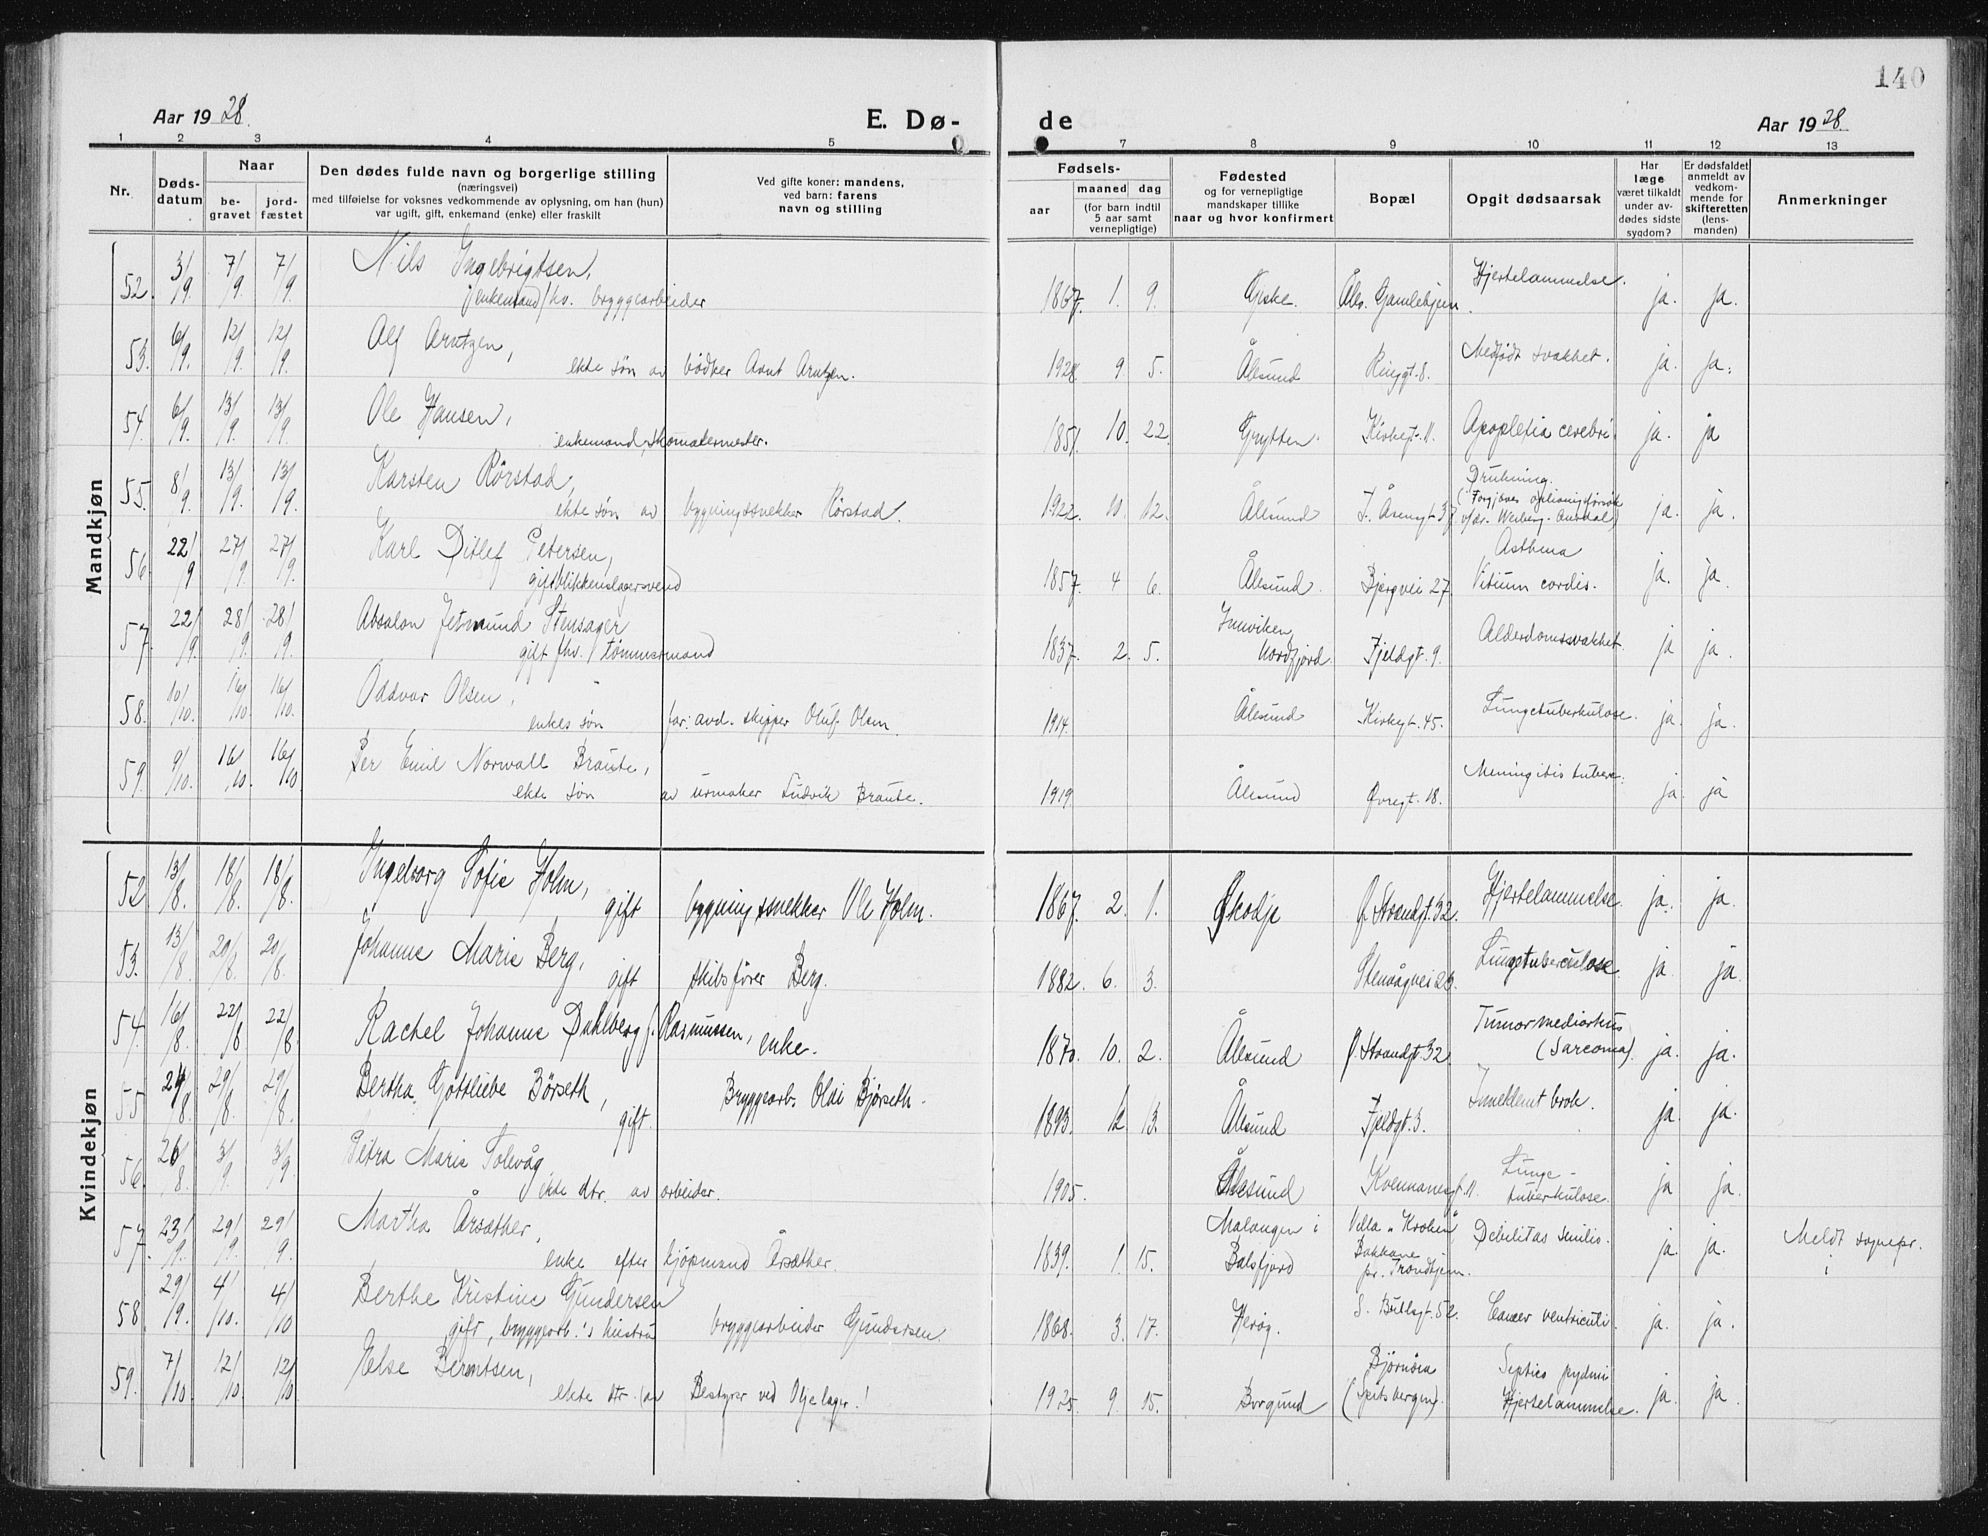 140
Aar 1928.
E. Dø-
de
Aar 1928.
1 2 3 4 5 7 8 9 10 11 12 13
Nr.
Døds-
datum
Naar
be-
gravet
jord-
fæstet
Den dødes fulde navn og borgerlige stilling
(næringsvei)
med tilføielse for voksnes vedkommende av oplysning, om han (hun)
var ugift, gift, enkemand (enke) eller fraskilt
Ved gifte koner: mandens,
ved barn: farens
navn og stilling
Fødsels-
aar
maaned dag
(for barn indtil
5 aar samt
vernepligtige)
Fødested
og for vernepligtige
mandskaper tillike
naar og hvor konfirmert
Bopæl
Opgit dødsaarsak
Har
læge
været tilkaldt
under av-
dødes sidste
sygdom?
Er dødsfaldet
anmeldt av
vedkom-
mende for
skifteretten
(lens-
manden)
Anmerkninger
Mandkjøn
52. 3/9. 7/9. 7/9. Nils Ingebrigtsen, 1867. 1. 9. Giske. Ales. Gamlehjem. Hjertelammelse. ja. ja.
enkemand fhv. bryggearbeider
53. 6/9. 12/9. 12/9. Alf Arntzen, 1928. 9 5. Ålesund Ringgt. 8. Medfødt svakhet. ja. ja.
ekte søn av bødker Arnt Arntzen.
54. 6/9. 13/9. 13/9. Ole Hansen, 1851. 10. 22. Grytten. Kirkegt. 11. Apoplexia cerebri. ja. ja
enkemand, skomakermester.
55. 8/9. 13/9. 13/9. Karsten Rørstad, 1922. 10. 12. Ålesund I. Åsengt 37. Drukning.
(Forgjæves oplivningsforsøk
v/dr. Wesberg-Aurdal) ja. ja.
ekte søn av bygningssnekker Rörstad.
56. 22/9 27/9. 27/9. Karl Ditlef Petersen, 1857. 4 6. Ålesund. Bjergvei 27. Asthma
Vitium cordis. ja. ja.
gift blikkenslagersvend
57. 22/9. 28/9. 28/9. Absalon Jetmund Stensager 1837. 2. 5. Innviken
Nordfjord. Fjeldgt. 9. Alderdomssvakhet. ja ja.
gift fhv. tømmermand
58. 10/10. 16/10. 16/10. Oddvar Olsen, 1914. Ålesund Kirkegt. 45. Lungetuberkulose. ja. ja.
enkes søn far: avd. skipper Oluf Olsen.
59. 9/10. 16/10. 16/10 Per Emil Norwall Braute, 1919. Ålesund Øvregt. 18. Meningitis tuberc. ja. ja
ekte søn av urmaker Ludvik Braute.
Kvindekjøn
52 13/8. 18/8. 18/8. Ingeborg Sofie Holm, 1867. 2. 1. Skodje Ø. Strandgt. 32. Hjertelammelse. ja. ja.
gift bygningssnekker Ole Holm.
53. 13/8. 20/8. 20/8. Johanne Marie Berg, 1882. 6. 3. Stenvågvei 26. Lungetuberculose. ja ja.
gift skibsfører Berg.
54. 16/8. 22/8 22/8. Rachel Johanne Dahlberg f. Rasmussen, enke. 1870. 10. 2. Ålesund Ø. Strandgt. 32 Tumor mediastinus
(Sarcoma). ja. ja.
55 24/8. 29/8. 29/8. Bertha Gottliebe Börseth, 1893. 12 13. Ålesund Fjeldgt. 3. Inneklemt brok. ja ja.
gift. Bryggearb. Oldi Bjørseth.
56. 26/8. 3/9. 3/9. Petra Marie Solevåg, 1905. Ålesund Kvennanesgt. 11. Lunge-
tuberkulose. ja ja.
ekte dtr. av arbeider.
57. 23/9. 29/9. 29/9. Martha Årsæther, 1839. 1. 15. Malangen i
Balsfjord Villa "Kroken"
Bakkane
pr. Trondhjem. Debilitas senilis. ja. ja. Meldt sognepr.
i
enke efter kjøpmand Årsæther.
58. 29/9. 4/10. 4/10 Berthe Kristine Gundersen 1868. 3. 17. Herøy. S. Bullsgt. 52. Cancer ventriculi. ja. ja.
gift, bryggearb.'s hustru bryggearbeider Gundersen.
59. 7/10 12/10 12/10 Else Berntsen, 1925. 9. 15. Borgund Bjørnøia
(Spitsbergen). Hjertelammelse. ja. ja.
ekte dtr. av Bestyrer ved Oljelager!